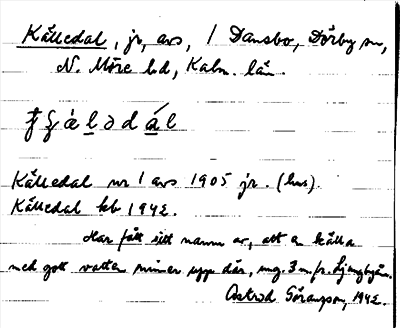 Källedal, jr, avs, / Dansbo, Dörby sn,
N. Möre hd, Kalm. län.
Källedal nr 1 avs 1905 jr. (hus).
Källedal kb 1942.
Har fått sitt namn av, att en källa
med gott vatten rinner upp där, ung. 3 m fr. Ljungbyån.
Astrid Göransson, 1942.